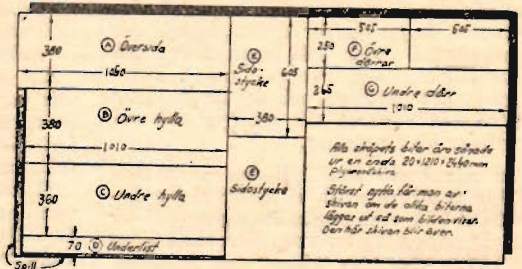 380
A Översida
1050
380
B Övre hylla
1010
360
C Undre hylla
70 D Underlist
Spill
E
Sido-
stycke
605
380
E
Sidostycke
505
505
250
F Övre
dörrar
265
G Undre dörr
1010
Alla skåpets bitar äro sågade
ur en enda 20×1210×2440 mm
Störst nytta får man av
skivan om de olika bitarna
läggas ut så som bilden visar.
Den här skivan blir över.